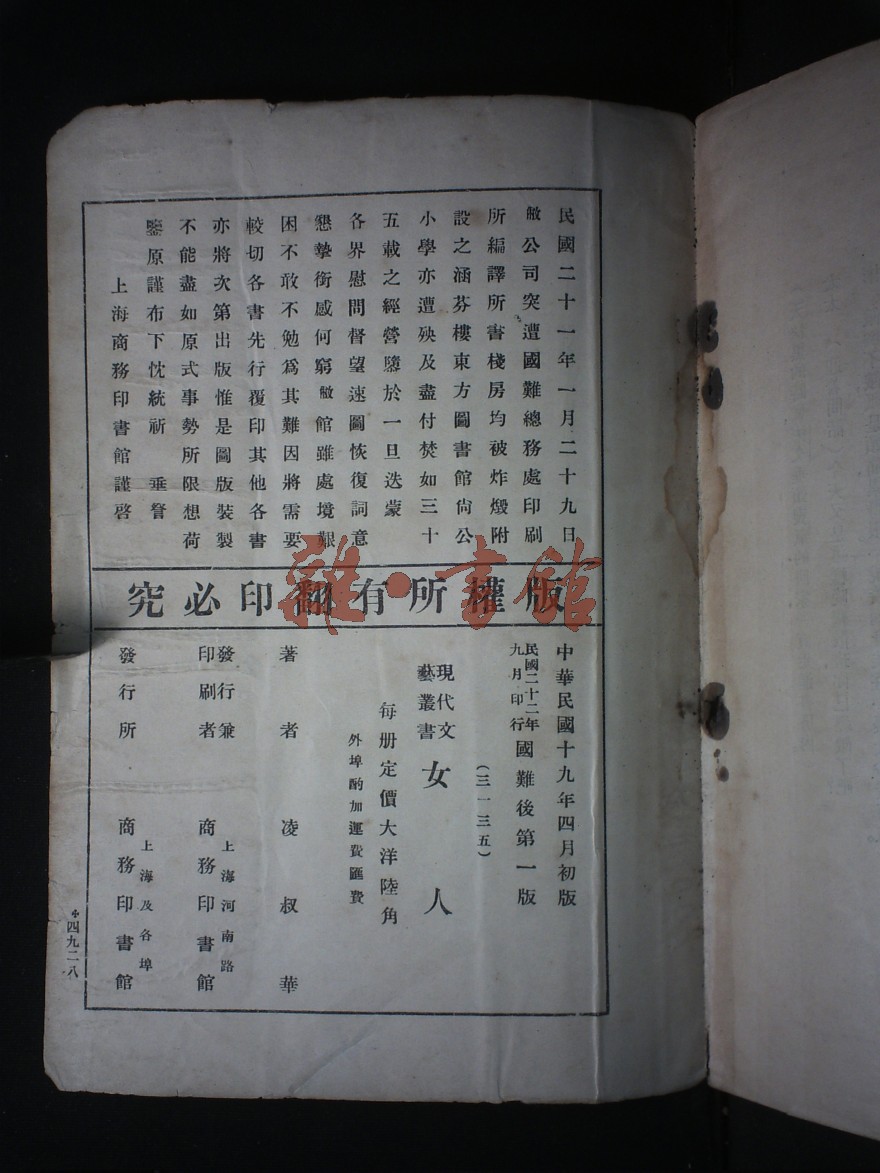 民國二十一年一月二十九日
敝公司突遭國難總務處印刷
所編譯所書棧房均被炸燬附
設之涵芬樓東方圖書館尚公
小學亦遭殃及盡付焚如三十
五載之經營隳於一旦迭蒙
各界慰問督望速圖恢復詞意
懇摯銜感何窮敝館雖處境艱
困不敢不勉爲其難因將需要
較切各書先行覆印其他各書
亦將次第出版惟是圖版裝製
不能盡如原式事勢所限想荷
鑒原謹布下忱統祈 垂詧
上海商務印書館謹啓
版權所有翻印必究
中華民國十九年四月初版
民國二十二年九月印行國難後第一版
(三一三五)
現代文藝叢書 女人
每册定價大洋陸角
外埠酌加運費匯費
著者 凌叔華
發行兼印刷者 上海河南路 商務印書館
發行所 上海及各埠 商務印書館
四九二八
雜·書館